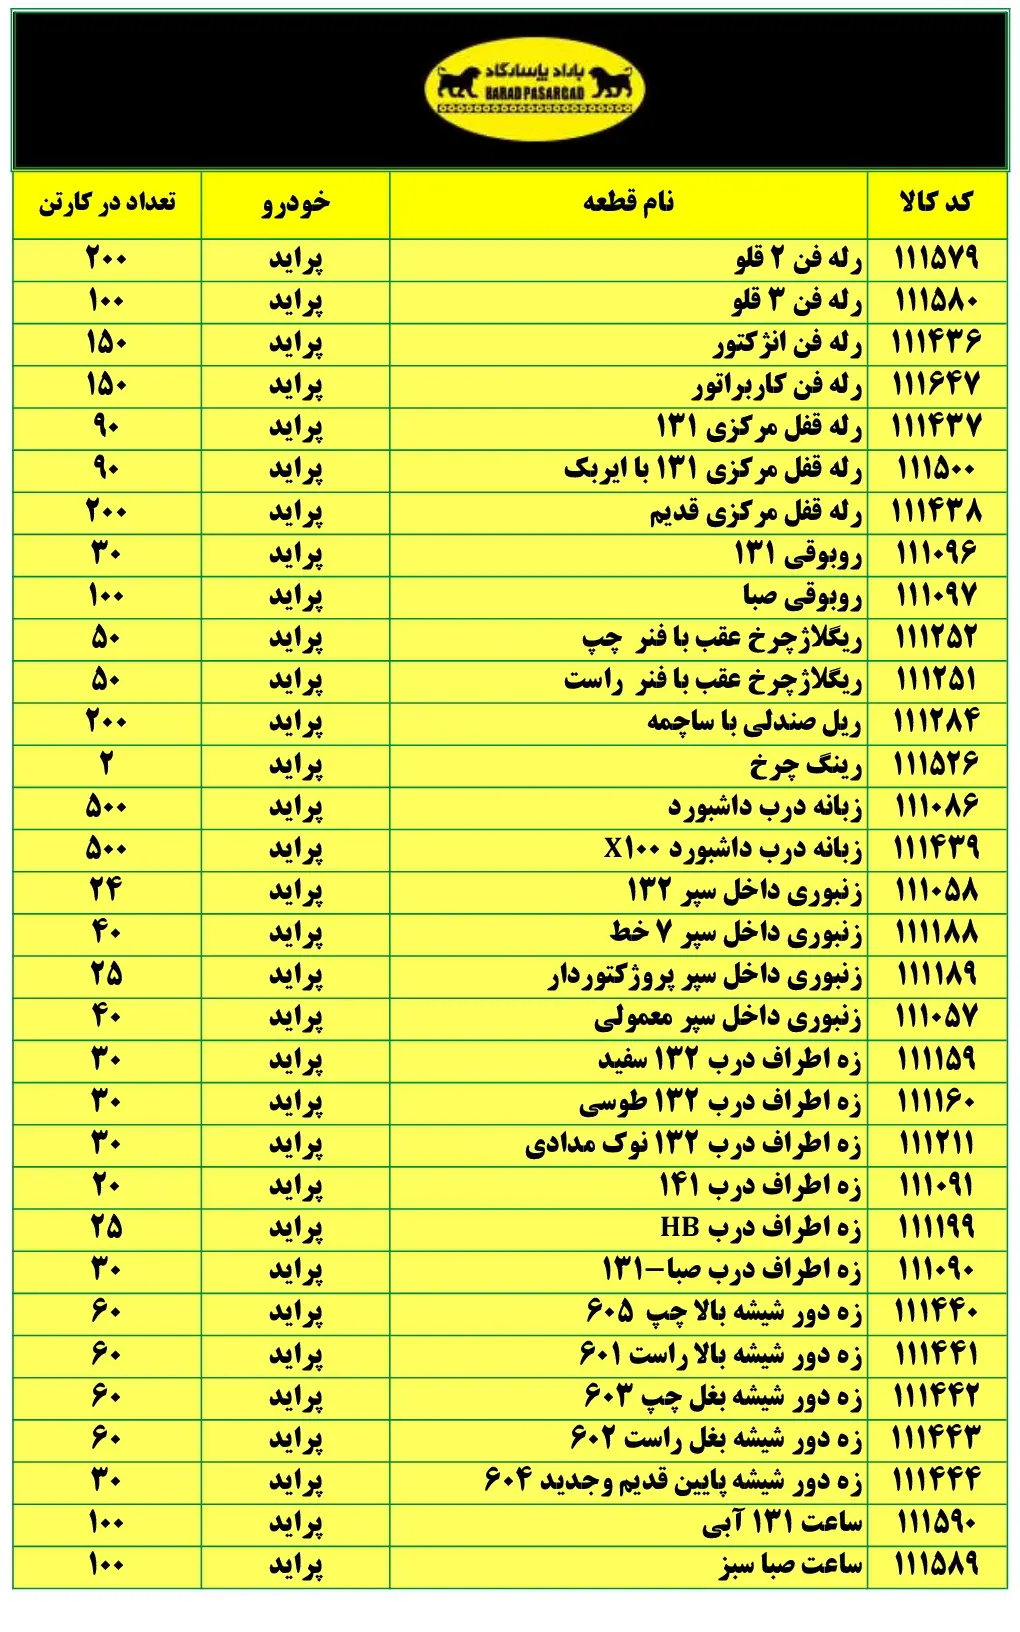 باراد پاسارگاد
BARAD PASARGAD
کد کالا نام قطعه خودرو تعداد در کارتن
۱۱۱۵۷۹ رله فن ۲ قلو پراید ۲۰۰
۱۱۱۵۸۰ رله فن ۳ قلو پراید ۱۰۰
۱۱۱۴۳۶ رله فن انژکتور پراید ۱۵۰
۱۱۱۶۴۷ رله فن کاربراتور پراید ۱۵۰
۱۱۱۴۳۷ رله قفل مرکزی ۱۳۱ پراید ۹۰
۱۱۱۵۰۰ رله قفل مرکزی ۱۳۱ با ایربک پراید ۹۰
۱۱۱۴۳۸ رله قفل مرکزی قدیم پراید ۲۰۰
۱۱۱۰۹۶ روبوقی ۱۳۱ پراید ۳۰
۱۱۱۰۹۷ روبوقی صبا پراید ۱۰۰
۱۱۱۲۵۲ ریگلاژچرخ عقب با فنر چپ پراید ۵۰
۱۱۱۲۵۱ ریگلاژچرخ عقب با فنر راست پراید ۵۰
۱۱۱۲۸۴ ریل صندلی با ساچمه پراید ۲۰۰
۱۱۱۵۲۶ رینگ چرخ پراید ۲
۱۱۱۰۸۶ زبانه درب داشبورد پراید ۵۰۰
۱۱۱۴۳۹ زبانه درب داشبورد X۱۰۰ پراید ۵۰۰
۱۱۱۰۵۸ زنبوری داخل سپر ۱۳۲ پراید ۲۴
۱۱۱۱۸۸ زنبوری داخل سپر ۷ خط پراید ۴۰
۱۱۱۱۸۹ زنبوری داخل سپر پروژکتوردار پراید ۲۵
۱۱۱۰۵۷ زنبوری داخل سپر معمولی پراید ۴۰
۱۱۱۱۵۹ زه اطراف درب ۱۳۲ سفید پراید ۳۰
۱۱۱۱۶۰ زه اطراف درب ۱۳۲ طوسی پراید ۳۰
۱۱۱۲۱۱ زه اطراف درب ۱۳۲ نوک مدادی پراید ۳۰
۱۱۱۰۹۱ زه اطراف درب ۱۴۱ پراید ۲۰
۱۱۱۱۹۹ زه اطراف درب HB پراید ۲۵
۱۱۱۰۹۰ زه اطراف درب صبا-۱۳۱ پراید ۳۰
۱۱۱۴۴۰ زه دور شیشه بالا چپ ۶۰۵ پراید ۶۰
۱۱۱۴۴۱ زه دور شیشه بالا راست ۶۰۱ پراید ۶۰
۱۱۱۴۴۲ زه دور شیشه بغل چپ ۶۰۳ پراید ۶۰
۱۱۱۴۴۳ زه دور شیشه بغل راست ۶۰۲ پراید ۶۰
۱۱۱۴۴۴ زه دور شیشه پایین قدیم وجدید ۶۰۴ پراید ۳۰
۱۱۱۵۹۰ ساعت ۱۳۱ آبی پراید ۱۰۰
۱۱۱۵۸۹ ساعت صبا سبز پراید ۱۰۰